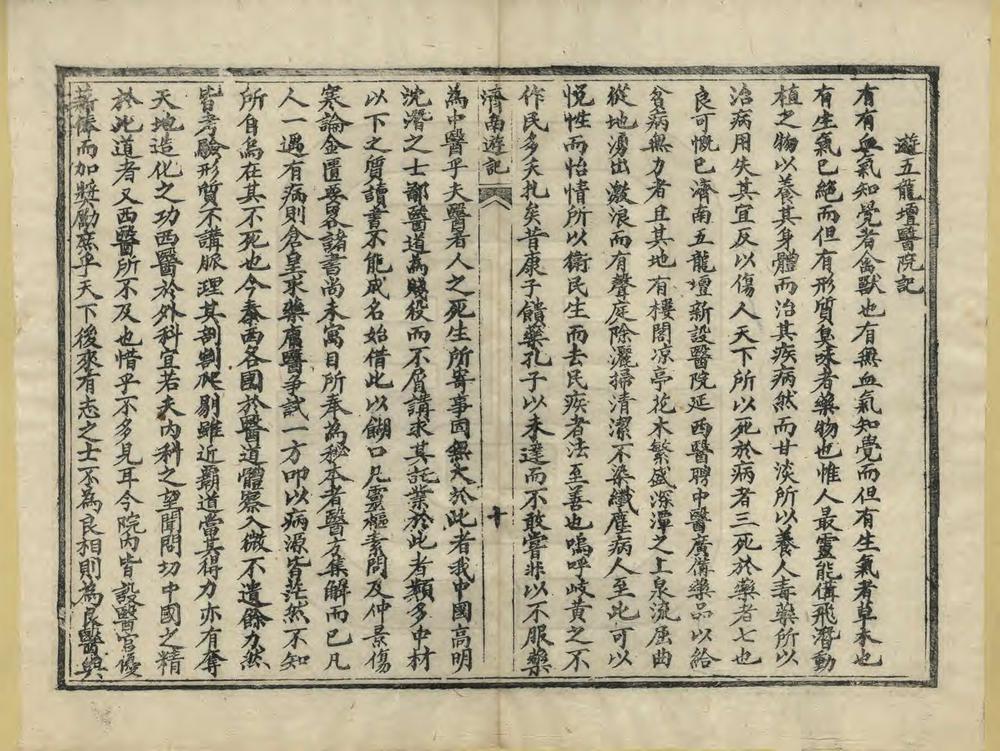 遊五龍壇醫院記
有有血氣知覺者禽獸也有無血氣知覺而但有生氣者草木也
有生氣已絕而但有形質臭味者藥物也惟人最靈能備飛潛動
植之物以養其身體而治其疾病然而甘淡所以養人毒藥所以
治病用失其宜反以傷人天下所以死於病者三死於藥者七也
良可慨已濟南五龍壇新設醫院延西醫聘中醫廣備藥品以給
貧病無力者且其地有樓閣凉亭花木繁盛深潭之上泉流屈曲
從地湧出激浪而有聲庭除灑掃清潔不染纖塵病人至此可以
悅性而怡情所以衛民生而去民疾者法至善也嗚呼岐黃之不
作民多夭扎矣昔康子饋藥孔子以未達而不敢嘗非以不服藥
濟南遊記
十
為中醫乎夫醫者人之死生所寄事固無大於此者我中國高明
沈潛之士鄙醫道為賤役而不屑講求其託業於此者類多中材
以下之質讀書不能成名始借此以餬口凡靈樞素問及仲景傷
寒論金匱要畧諸書尚未寓目所奉為秘本者醫方集解而已凡
人一遇有病則倉皇求藥庸醫爭試一方叩以病源皆茫然不知
所自烏在其不死也今泰西各國於醫道體察入微不遺餘力然
皆考驗形質不講脈理其剖割爬剔雖近霸道當其得力亦有奪
天地造化之功西醫於外科宜若夫內科之望聞問切中國之精
於此道者又西醫所不及也惜乎不多見耳今院內皆設醫官優
薪俸而加獎勵庶乎天下後來有志之士不為良相則為良醫與